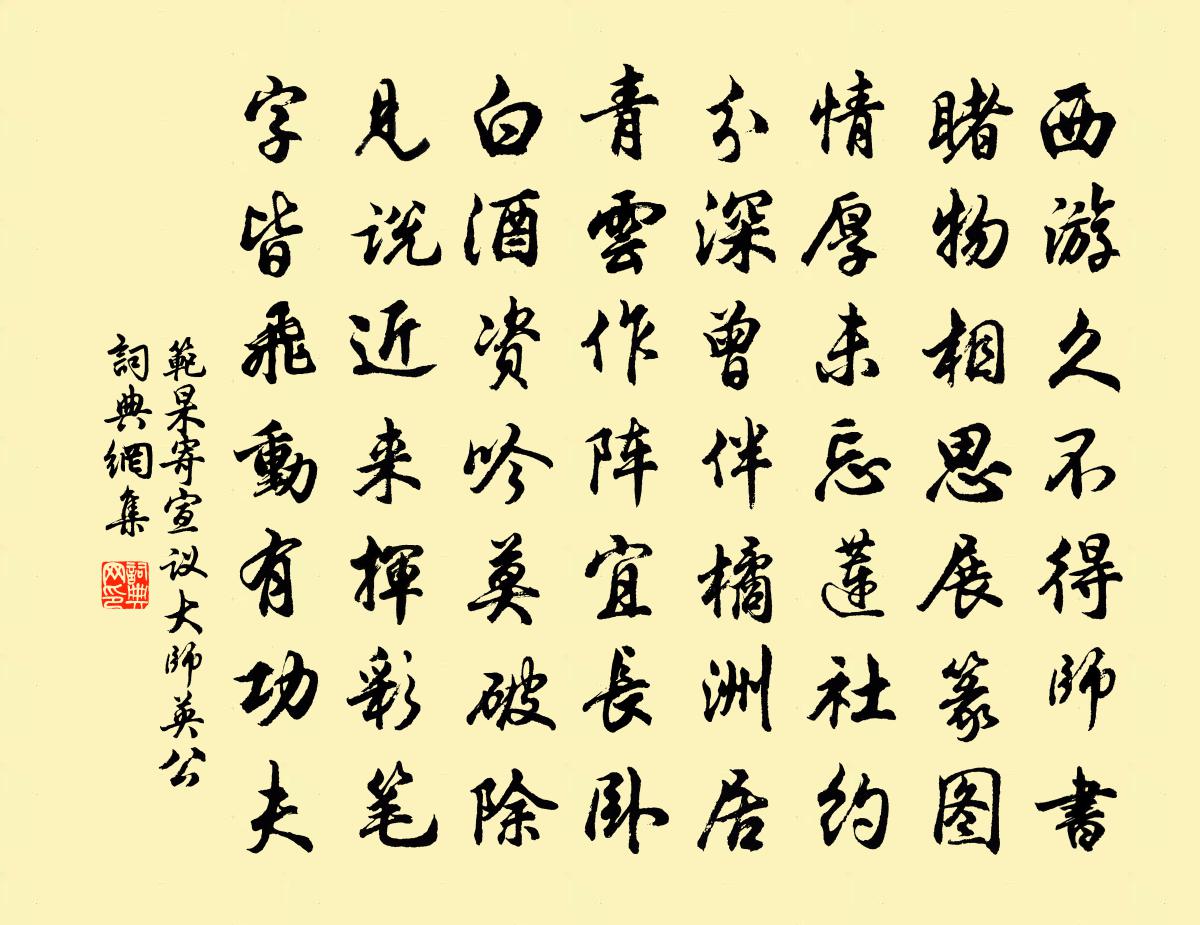 西游久不得师書
睹物相思展篆图
情厚未忘莲社约
分深曾伴橘洲居
青雲作阵宜長卧
白酒资吟莫破除
見说近来揮彩笔
字皆飛動有功夫
範杲寄宣议大师英公
詞典網集
詞典网印